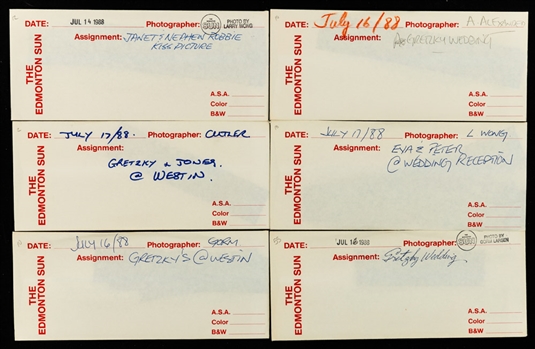 THE EDMONTON SUN
DATE: JUL 14 1988 Photographer: PHOTO BY LARRY WONG
Assignment: JANET'S NEPHEW ROBBIE
KISS PICTURE
A.S.A.
Color
B&W
THE EDMONTON SUN
DATE: July 16/88 Photographer: A
Assignment: GRETZKY WEDDING
A.S.A.
Color
B&W
THE EDMONTON SUN
DATE: JULY 17/88. Photographer: CUTLER
Assignment:
GRETZKY & JONES
@ WESTIN.
A.S.A.
Color
B&W
THE EDMONTON SUN
DATE: JULY 17/88 Photographer: L WONG
Assignment: EVA & PETER
@ WEDDING RECEPTION
A.S.A.
Color
B&W
THE EDMONTON SUN
DATE: JULY 16/88 Photographer: GORM
Assignment: GRETZKY'S @ WESTIN
A.S.A.
Color
B&W
THE EDMONTON SUN
DATE: JUL 16 1988 Photographer: SUN PHOTO BY GORM LARSEN
Assignment: Gretzky Wedding
A.S.A.
Color
B&W